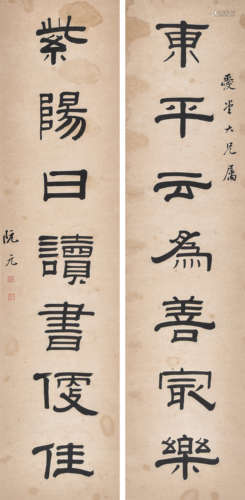 東平云為善冣樂
愛堂大兄屬
紫陽曰讀書便佳
阮元